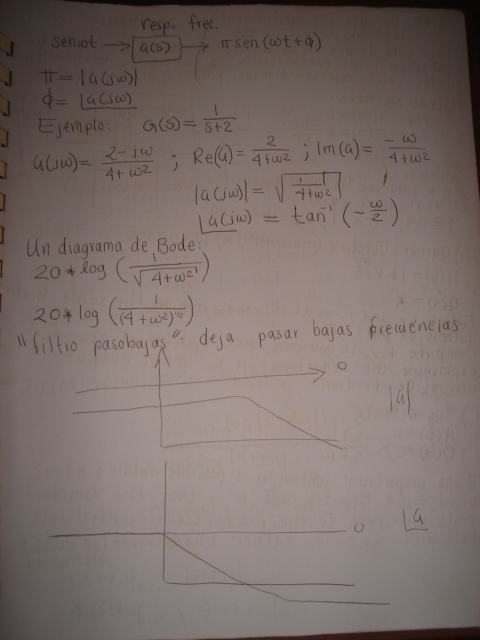 resp. frec.
senωt → G(s) → π sen(ωt+ϕ)
π = |G(jω)|
ϕ = ∠G(jω)
Ejemplo: G(s) = 1/(s+2)
G(jω) = (2-jω)/(4+ω²) ; Re(G) = 2/(4+ω²) ; Im(G) = -ω/(4+ω²)
|G(jω)| = √(1/(4+ω²))
∠G(jω) = tan⁻¹(-ω/2)
Un diagrama de Bode:
20*log(1/√(4+ω²))
20*log(1/(4+ω²)^1/2)
"filtro pasobajas": deja pasar bajas frecuencias
0
|G|
0
∠G